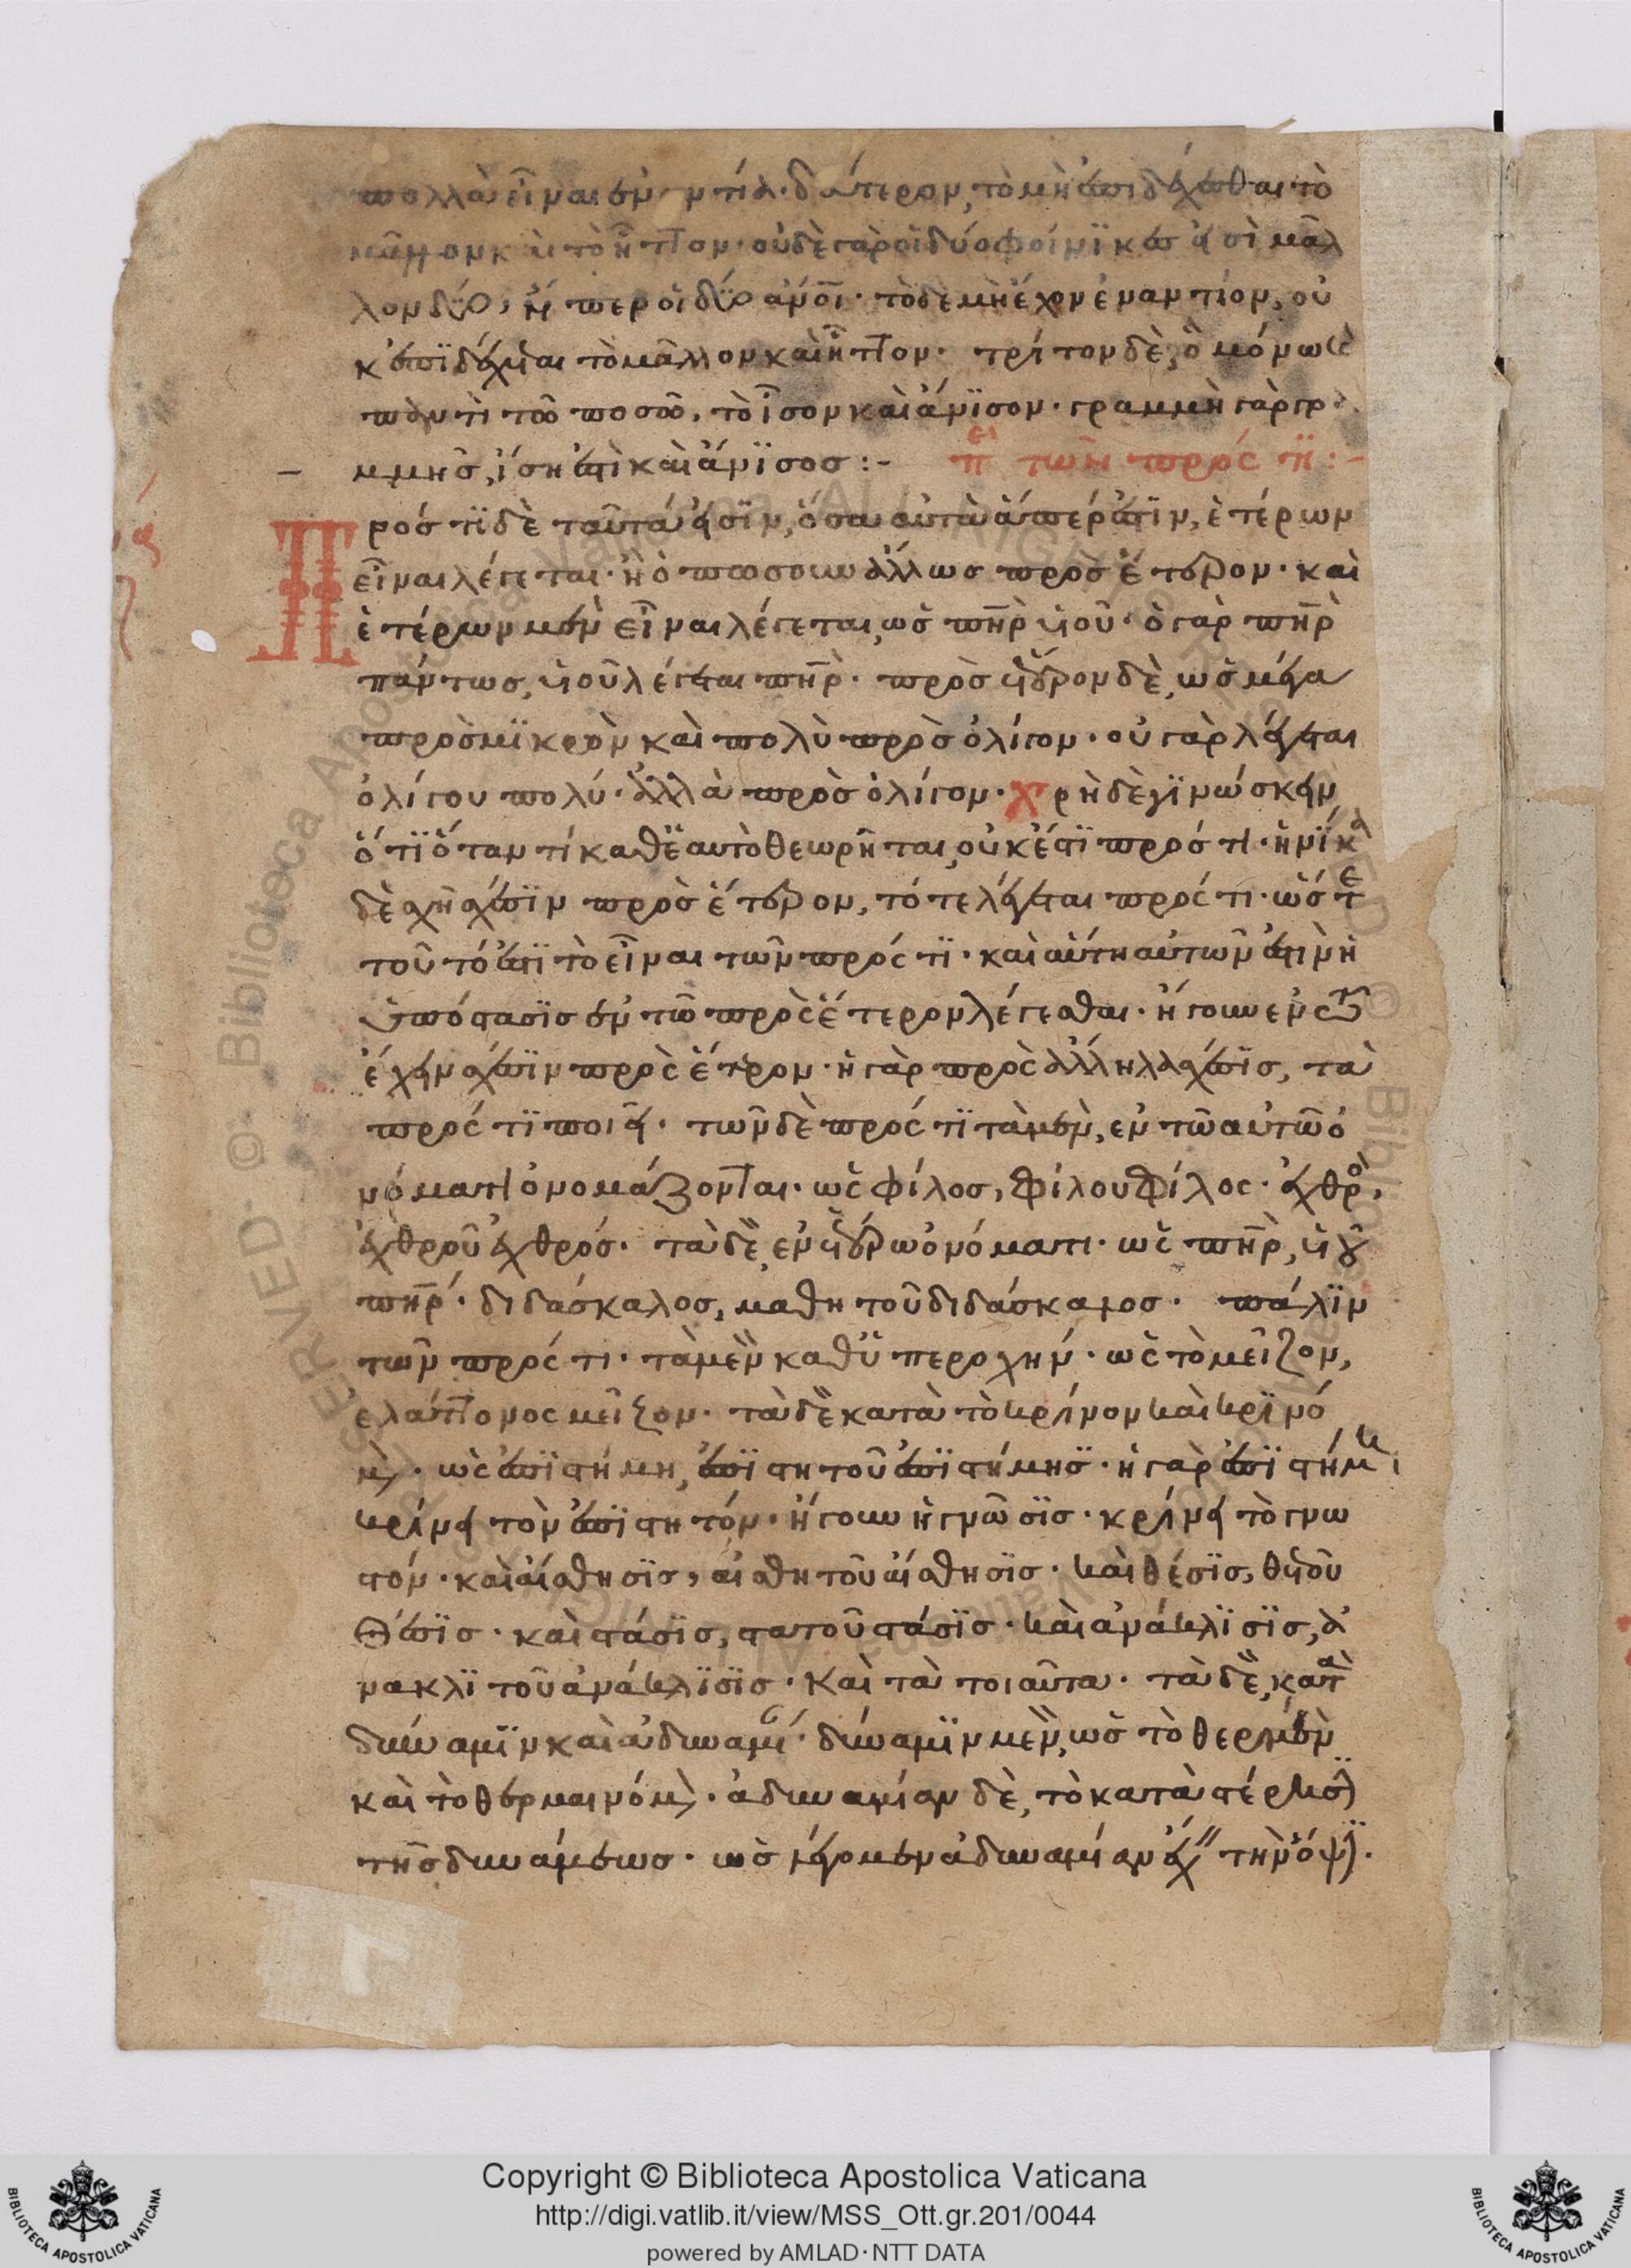 πολλὰ εἶναι ἐναντία· δεύτερον, τὸ μὴ ἐπιδέχεσθαι τὸ
μᾶλλον καὶ τὸ ἧττον· οὐδὲ γὰρ οἱ δύο φοίνικες εἰσὶ μᾶλ
λον δύο, ἤπερ οἱ δύο ἄνοι· τὸ δὲ μὴ ἔχον ἐναντίον, οὐ
κ ἐπϊδέχεται τὸ μᾶλλον καὶ ἧττον· τρίτον δὲ, ὃ μόνως
πὸν τὶ τοῦ ποσοῦ, τὸ ἶσον καὶ ἄνϊσον· γραμμὴ γὰρ γρα
μμῆς, ἴση ἐστὶ καὶ ἄνϊσος :-
περὶ τῶν πρός τϊ :-
Πρός τϊ δὲ ταῦτά εἰσϊν, ὅσα αὐτὰ ἅπερ ἐστϊν, ἑτέρων
εἶναι λέγεται· ἢ ὁπωσοῦν ἄλλως πρὸς ἕτερον· καὶ
ἑτέρων μὲν εἶναι λέγεται, ὡς πηρ υἱοῦ· ὁ γὰρ πηρ
πάντως, υἱοῦ λέγεται πηρ· πρὸς ἕτερον δὲ, ὡς μέγα
πρὸς μϊκρὸν καὶ πολὺ πρὸς ὀλίγον· οὐ γὰρ λέγεται
ὀλίγου πολύ· ἀλλὰ πρὸς ὀλίγον· χρὴ δὲ γϊνώσκειν
ὅτϊ ὅταν τί καθ' ἑαυτὸ θεωρῆται, οὐκ ἔστϊ πρός τι· ἡνίκα
δὲ ἔχη σχέσϊν πρὸς ἕτερον, τότε λέγεται πρός τι· ὥστε
τοῦτό ἐστϊ τὸ εἶναι τῶν πρός τϊ· καὶ αὕτη αὐτῶν ἐστιν ἡ
ὑπόστασϊς ἐν τῶ πρὸς ἕτερον λέγεσθαι· ἤγουν ἐν τῶ
ἔχειν σχέσϊν πρὸς ἕτερον· ἡ γὰρ πρὸς ἄλληλα σχέσϊς, τὰ
πρός τϊ ποιεῖ· τῶν δὲ πρός τϊ τὰ μὲν, ἐν τῶ αὐτῶ ὀ
νόματι ὀνομάζονται· ὡς φίλος, φίλου φίλος· ἐχθρὸς,
ἐχθροῦ ἐχθρός· τὰ δὲ, ἐν ἑτέρω ὀνόματι· ὡς πηρ, υἱοῦ
πηρ· διδάσκαλος, μαθητοῦ διδάσκαλος· πάλϊν
τῶν πρός τι· τὰ μὲν καθ' ὑπεροχήν· ὡς τὸ μεῖζον,
ἐλάττονος μεῖζον· τὰ δὲ κατὰ τὸ κρίνον καὶ κρϊνό
μενον· ὡς ἐπϊστήμη, ἐπϊστητοῦ ἐπϊστήμης· ἡ γὰρ ἐπϊστήμη
κρίνει τὸν ἐπϊστητόν· ἤγουν ἡ γνῶσϊς· κρίνει τὸ γνω
στόν· καὶ αἴσθησϊς, αἰσθητοῦ αἴσθησϊς· καὶ θέσϊς, θετοῦ
θέσϊς· καὶ στάσϊς, στατοῦ στάσϊς· καὶ ἀνάκλϊσϊς, ἀ
νακλϊτοῦ ἀνάκλϊσϊς· καὶ τὰ τοιαῦτα· τὰ δὲ, κατὰ
δύναμϊν καὶ ἀδυναμίαν· δύναμϊν μὲν, ὡς τὸ θερμαῖνον
καὶ τὸ θερμαινόμενον· ἀδυναμίαν δὲ, τὸ κατὰ στέρησιν
τῆς δυνάμεως· ὡς λέγομεν ἀδυναμίαν ἔχειν τὴν ὄψιν·
Copyright © Biblioteca Apostolica Vaticana
http://digi.vatlib.it/view/MSS_Ott.gr.201/0044
powered by AMLAD·NTT DATA
BIBLIOTECA APOSTOLICA VATICANA
BIBLIOTECA APOSTOLICA VATICANA